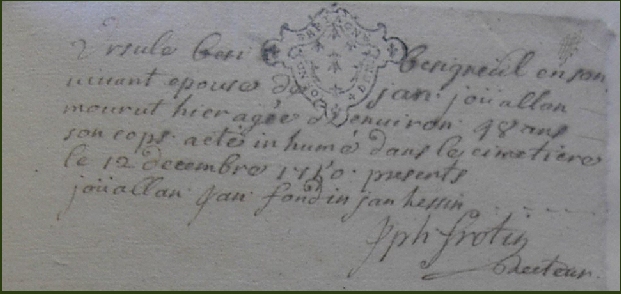 Ursule besigneul en son
vivant epouse de jan joüallan
mourut hier agée d'environ 48 ans
son cops acté inhumé dans le cimetiere
le 12 decembre 1710. presents
joüallan jan fondin jan hessin
Jph frotin
Recteur